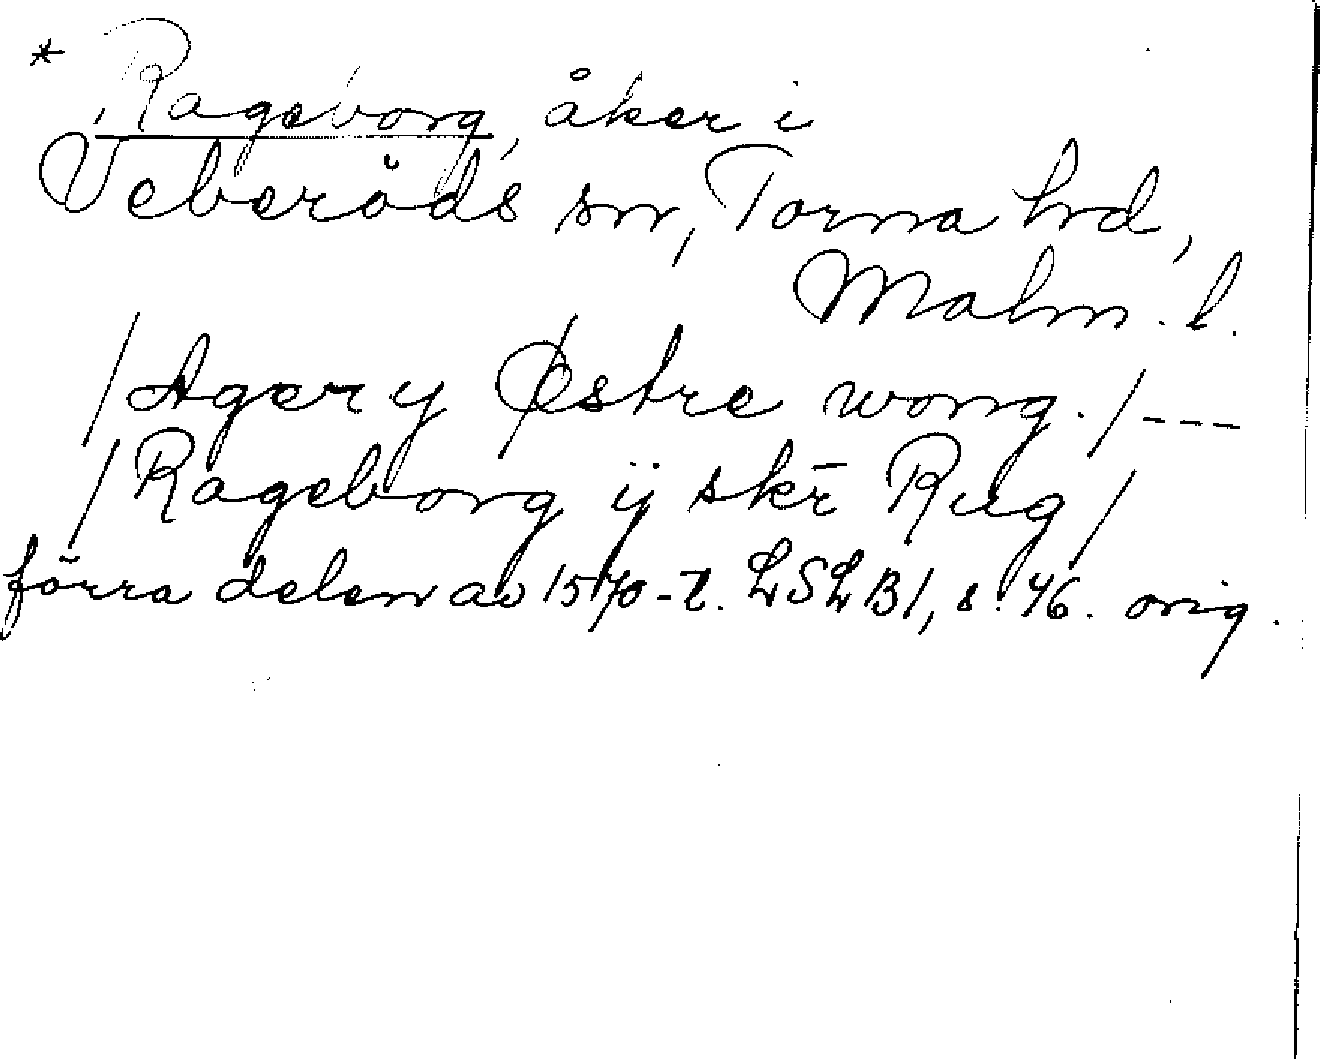 * Rageborg, åker i
Veberöds sn, Torna hd,
Malm. l.
/Ager y Østre wong./---
/Rageborg ij skr̄ Rug/
förra delen av 1570-t. LSLB1, s. 46. orig.